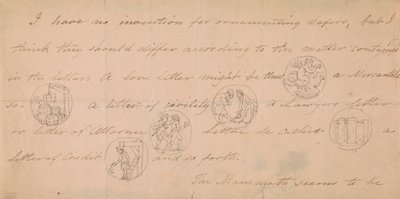 I have no invention for ornamenting wafers, but I
think they should differ according to the matter contained
in the letter. A love letter might be thus a Mercantile
so- A letter of civility A Lawyers letter
or letter of Attorney Lettre de Cachet a
letter of Credit and so forth.
The Mamayath seems to be